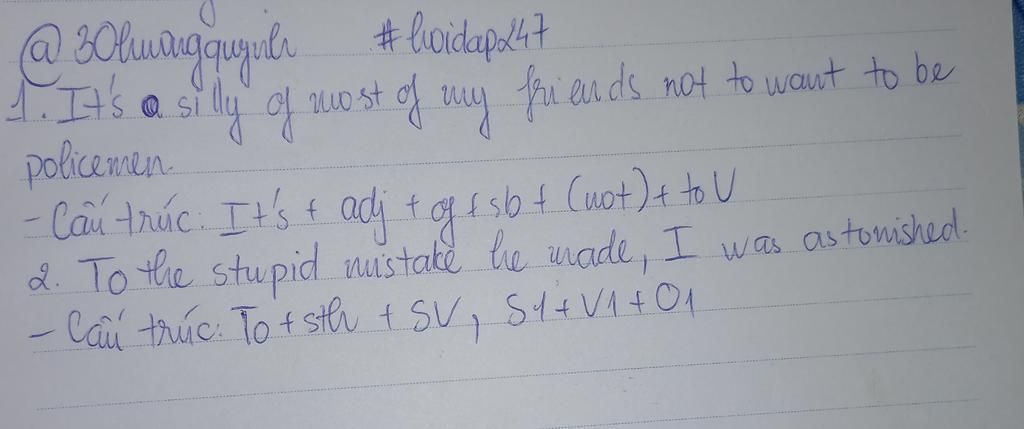 @30huongquynh #hoidap247
1. It's a silly of most of my friends not to want to be
policemen.
- Cấu trúc: It's + adj + of + sb + (not) + to V
2. To the stupid mistake he made, I was astonished.
- Cấu trúc: To + sth + SV, S1 + V1 + O1